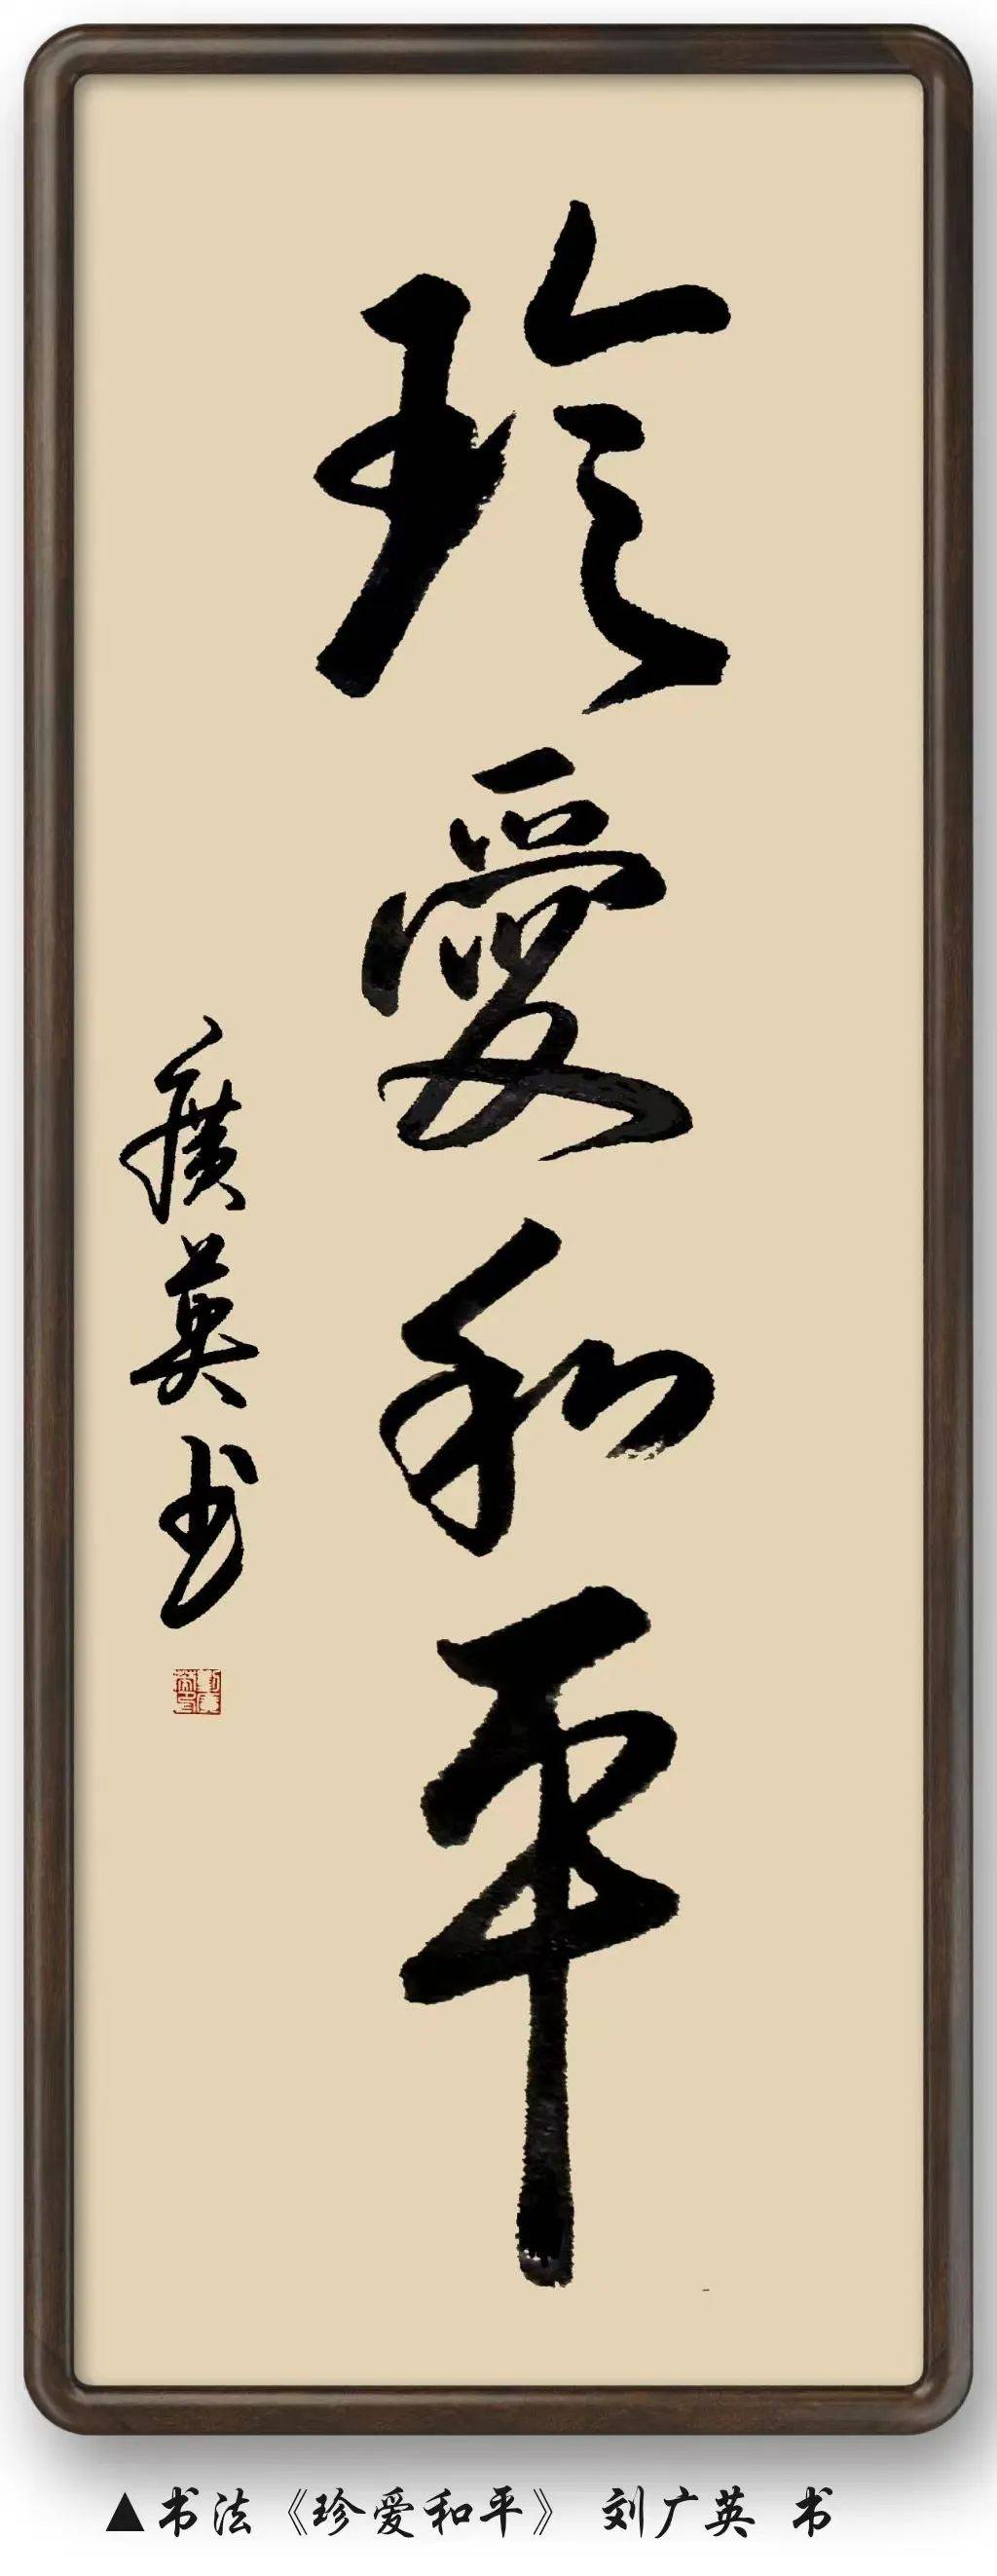 珍愛和平
廣英书
▲书法《珍爱和平》 刘广英 书